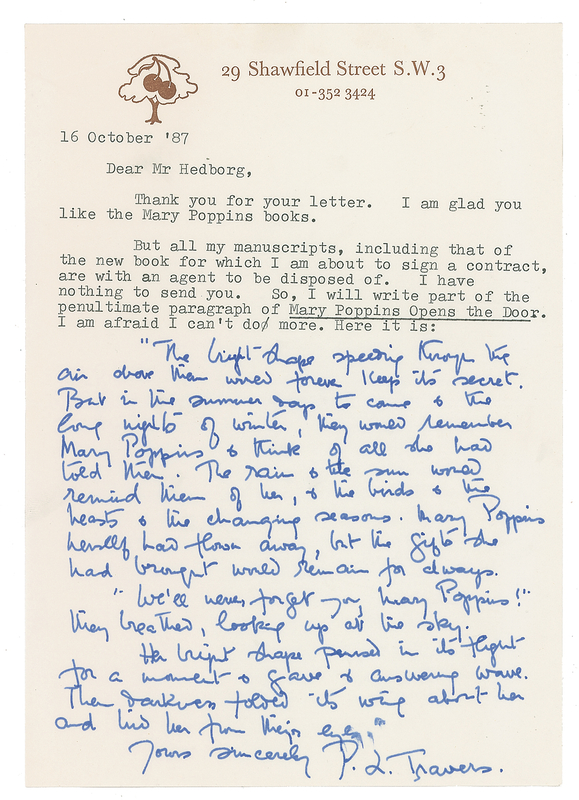 29 Shawfield Street S.W.3
01-352 3424
16 October '87
Dear Mr Hedborg,
Thank you for your letter. I am glad you
like the Mary Poppins books.
But all my manuscripts, including that of
the new book for which I am about to sign a contract,
are with an agent to be disposed of. I have
nothing to send you. So, I will write part of the
penultimate paragraph of Mary Poppins Opens the Door.
I am afraid I can't do more. Here it is:
"The bright shape speeding through the
air above them would forever keep its secret.
But in the summer days to come & the
long nights of winter, they would remember
Mary Poppins & think of all she had
told them. The rain & the sun would
remind them of her, & the birds & the
beasts & the changing seasons. Mary Poppins
herself had flown away, but the gifts she
had brought would remain for always.
"We'll never forget you, Mary Poppins!"
they breathed, looking up at the sky.
Her bright shape paused in its flight
for a moment & gave & answering wave.
Then darkness folded its wing about her
and hid her from their eyes."
Yours sincerely P. L. Travers.